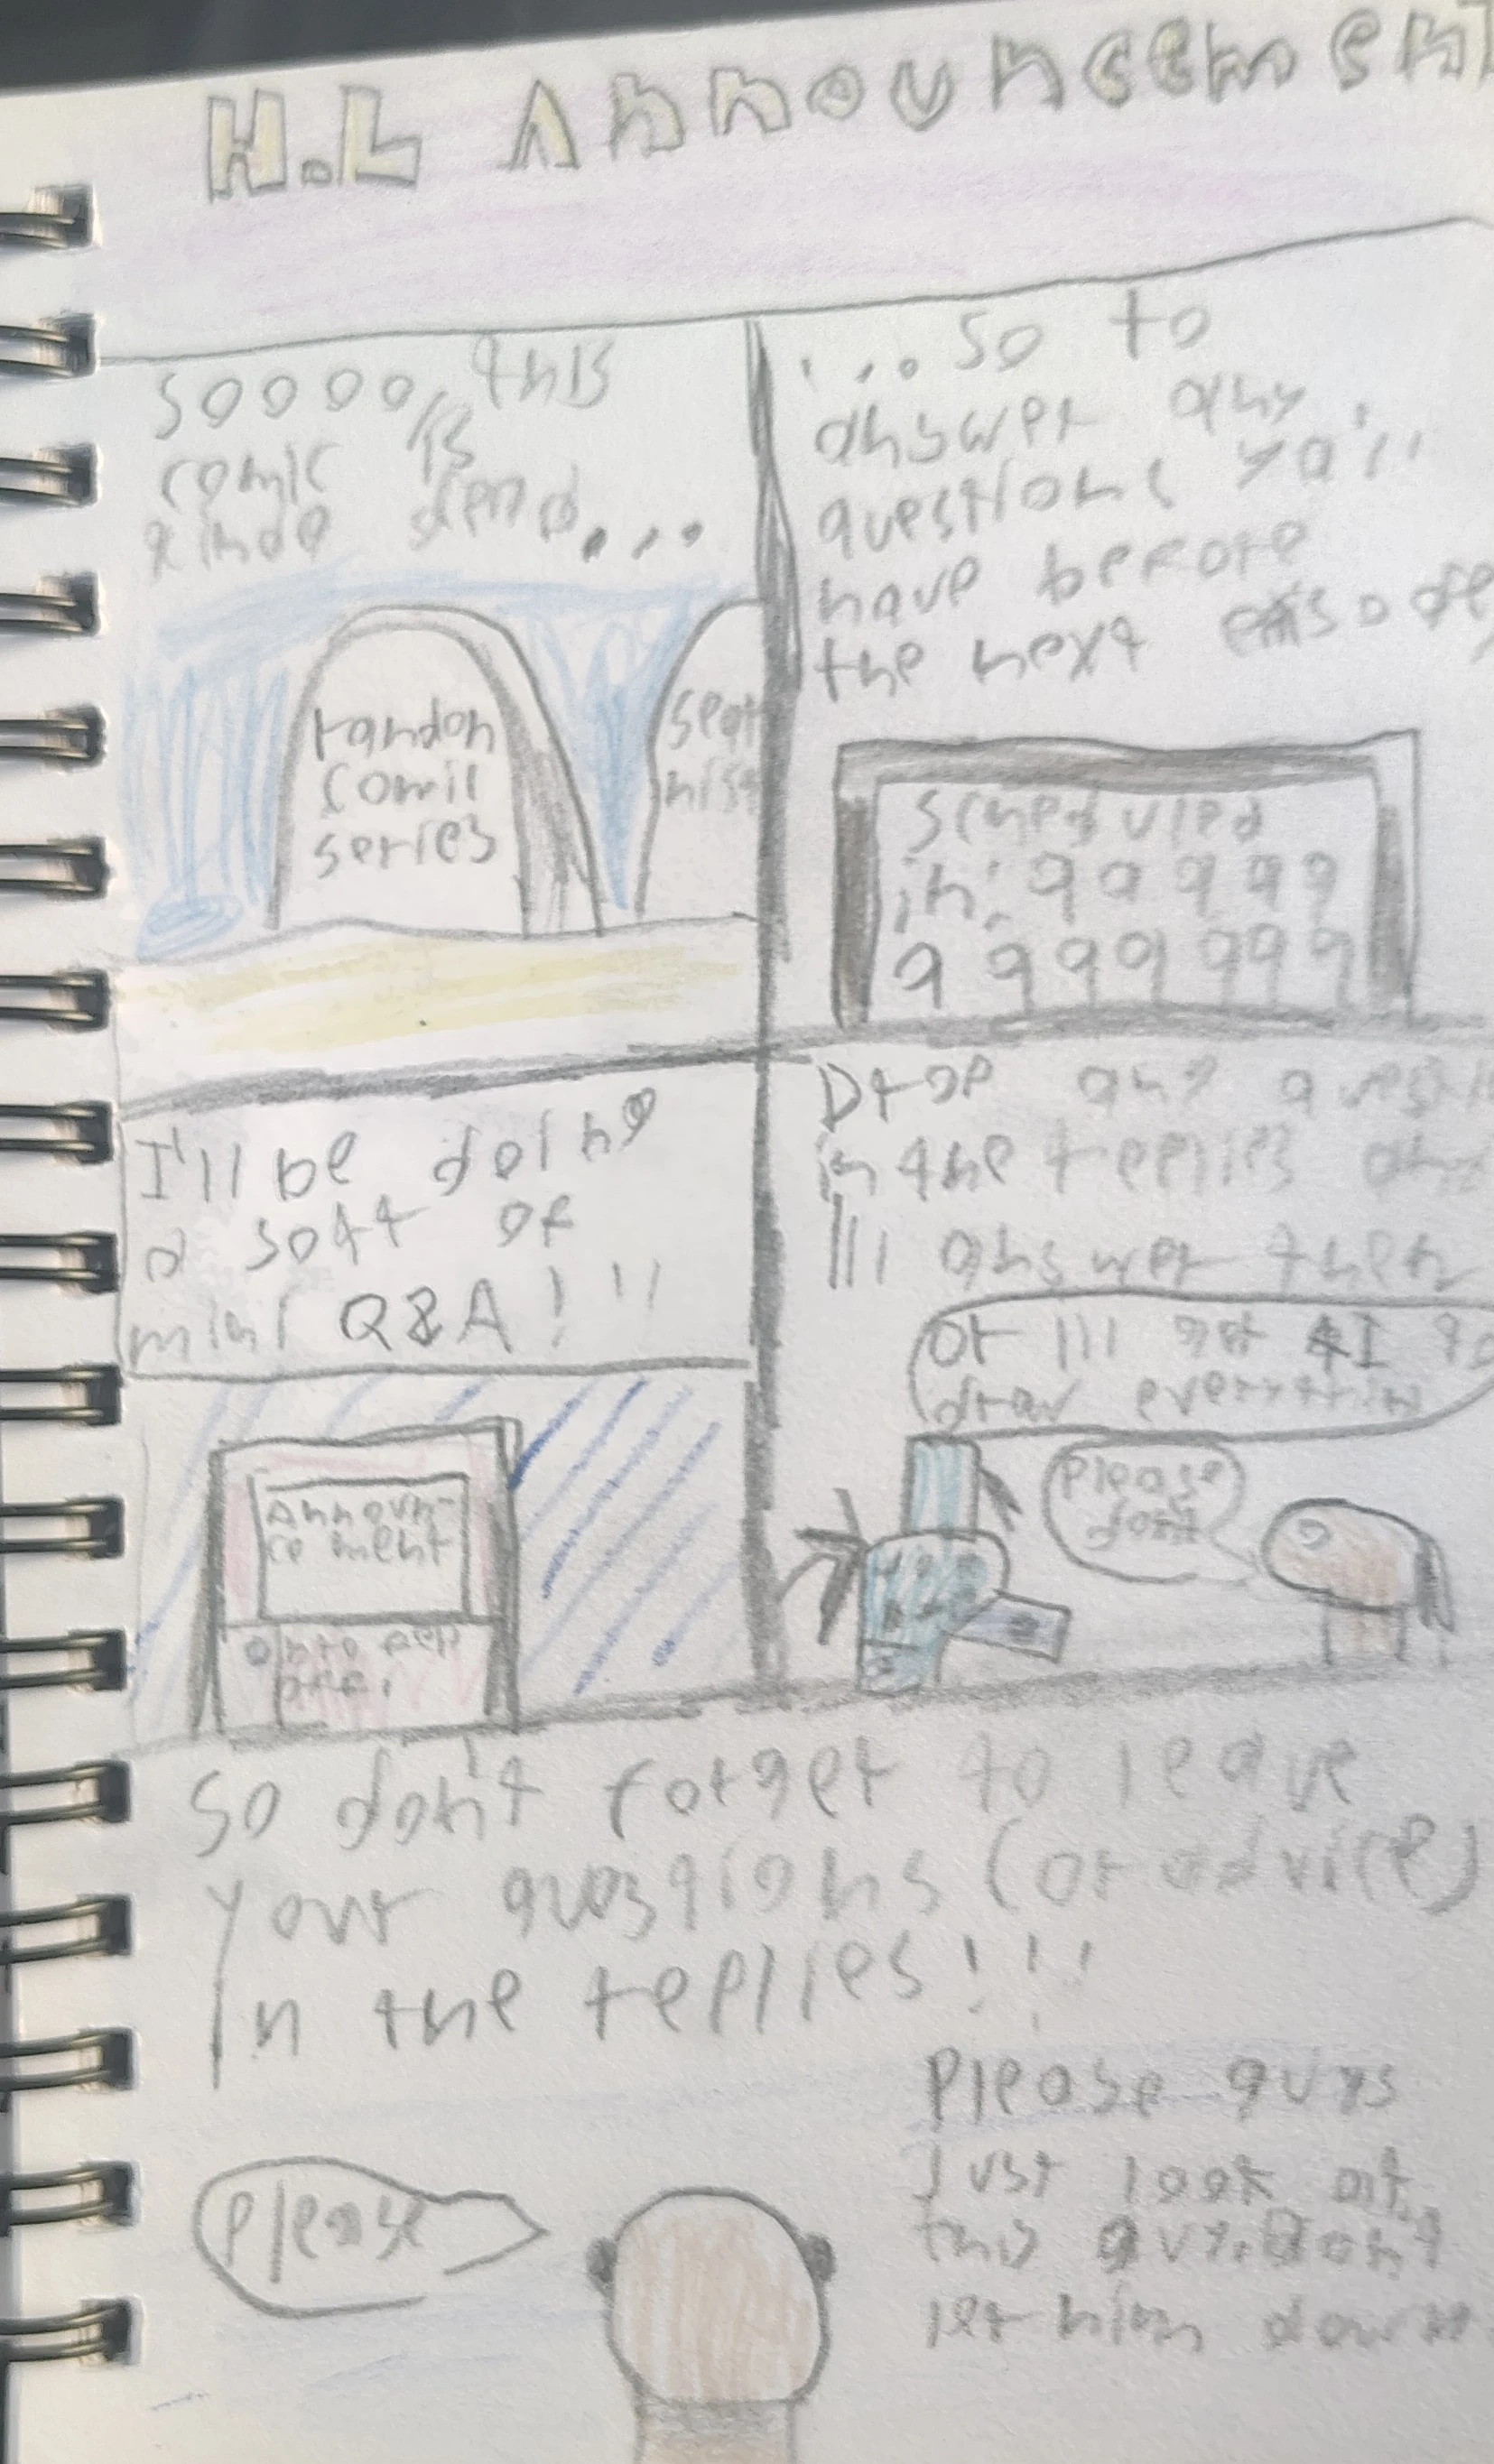 H.L Announcement
soooo, this
comic is
kinda dend...
random
comic
series
...so to
answer any
questions ya'll
have before
the next episode,
scheduled
in: 99999
9999999
I'll be doing
a sort of
mini Q&A!!!
Announ-
cement
Drop any
in the replies and
I'll answer them
or I'll get AI to
draw everything
please
dont
So don't forget to leave
your quesqions (or advice)
In the replies!!!
please guys
Just look at
this guy. Don't
let him down
please